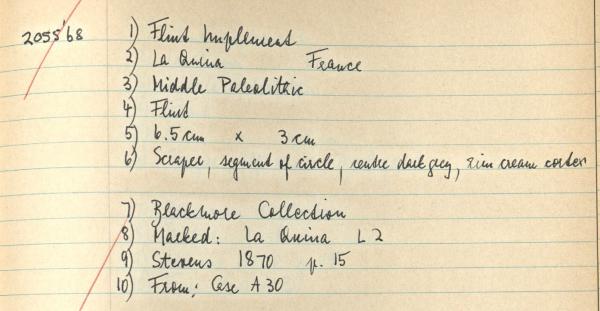 2055'68 1) Flint Implement
2) La Quina France
3) Middle Paleolithic
4) Flint
5) 6.5 cm x 3 cm
6) Scraper, segment of circle, centre dark grey, rim cream cortex
7) Blackmore Collection
8) Marked: La Quina L 2
9) Stevens 1870 p. 15
10) From: Case A 30